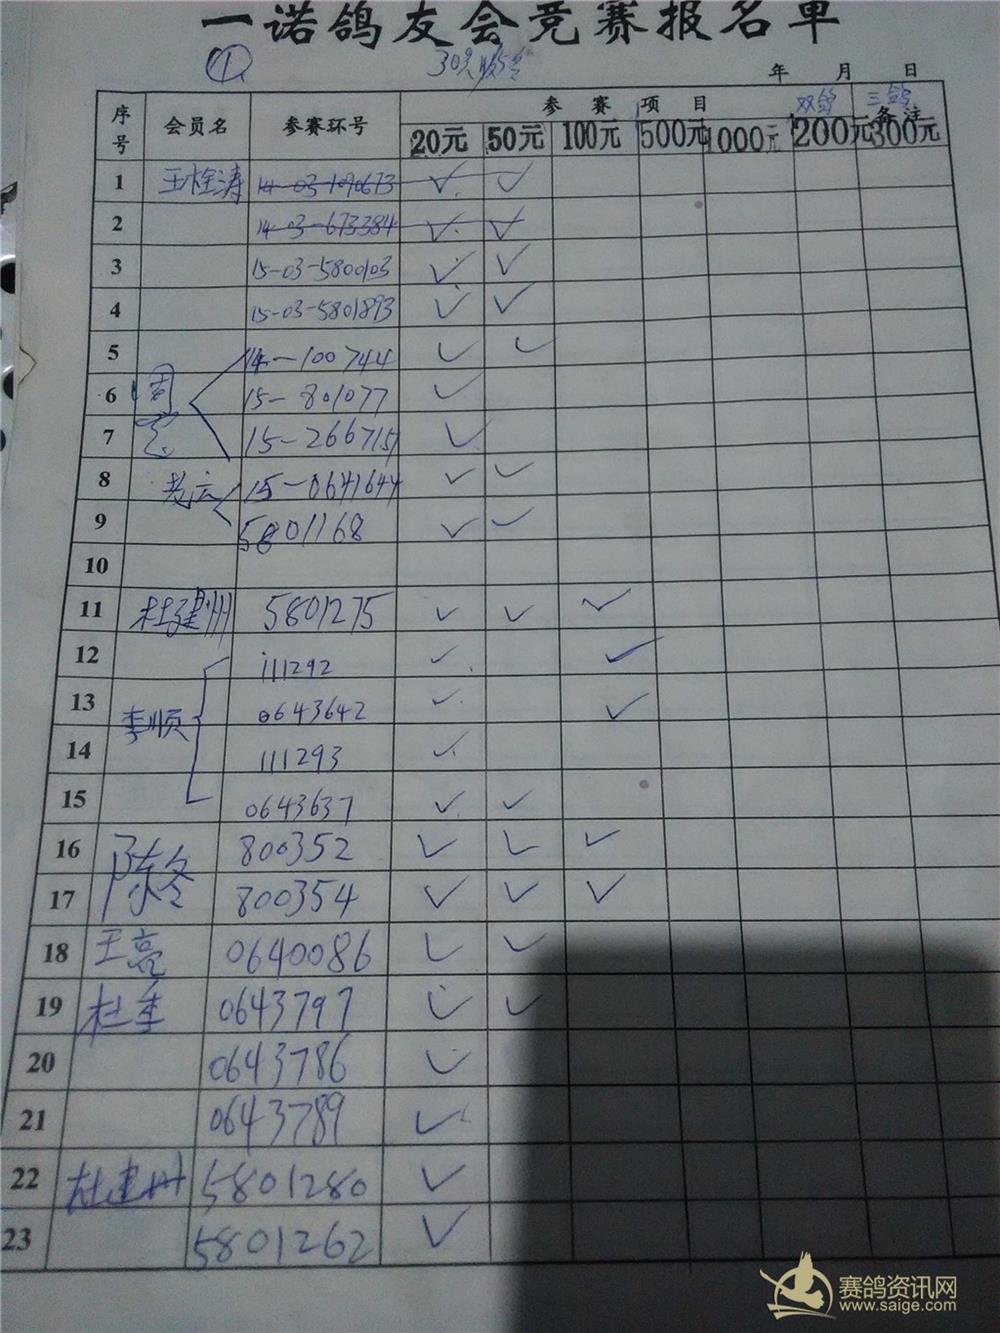 一诺鸽友会竞赛报名单
① 30元
年 月 日
序号 会员名 参赛环号 参赛项目 双鸽 三鸽 备注
20元 50元 100元 500元 1000元 200元 300元
1 王栓涛 14-03-190673 ✓ ✓
2 14-03-673384 ✓ ✓
3 15-03-5800103 ✓ ✓
4 15-03-5801893 ✓ ✓
5 14-100744 ✓ ✓
6 15-801077 ✓
7 15-266715 ✓
8 15-0641644 ✓ ✓
9 5801168 ✓ ✓
10
11 杜建州 5801275 ✓ ✓ ✓
12 111292 ✓ ✓
13 李顺 0643642 ✓ ✓
14 111293 ✓
15 0643637 ✓ ✓
16 陈冬 800352 ✓ ✓ ✓
17 800354 ✓ ✓ ✓
18 王亮 0640086 ✓ ✓
19 杜季 0643797 ✓ ✓
20 0643786 ✓
21 0643789 ✓
22 杜建州 5801280 ✓
23 5801262 ✓
赛鸽资讯网
www.saige.com